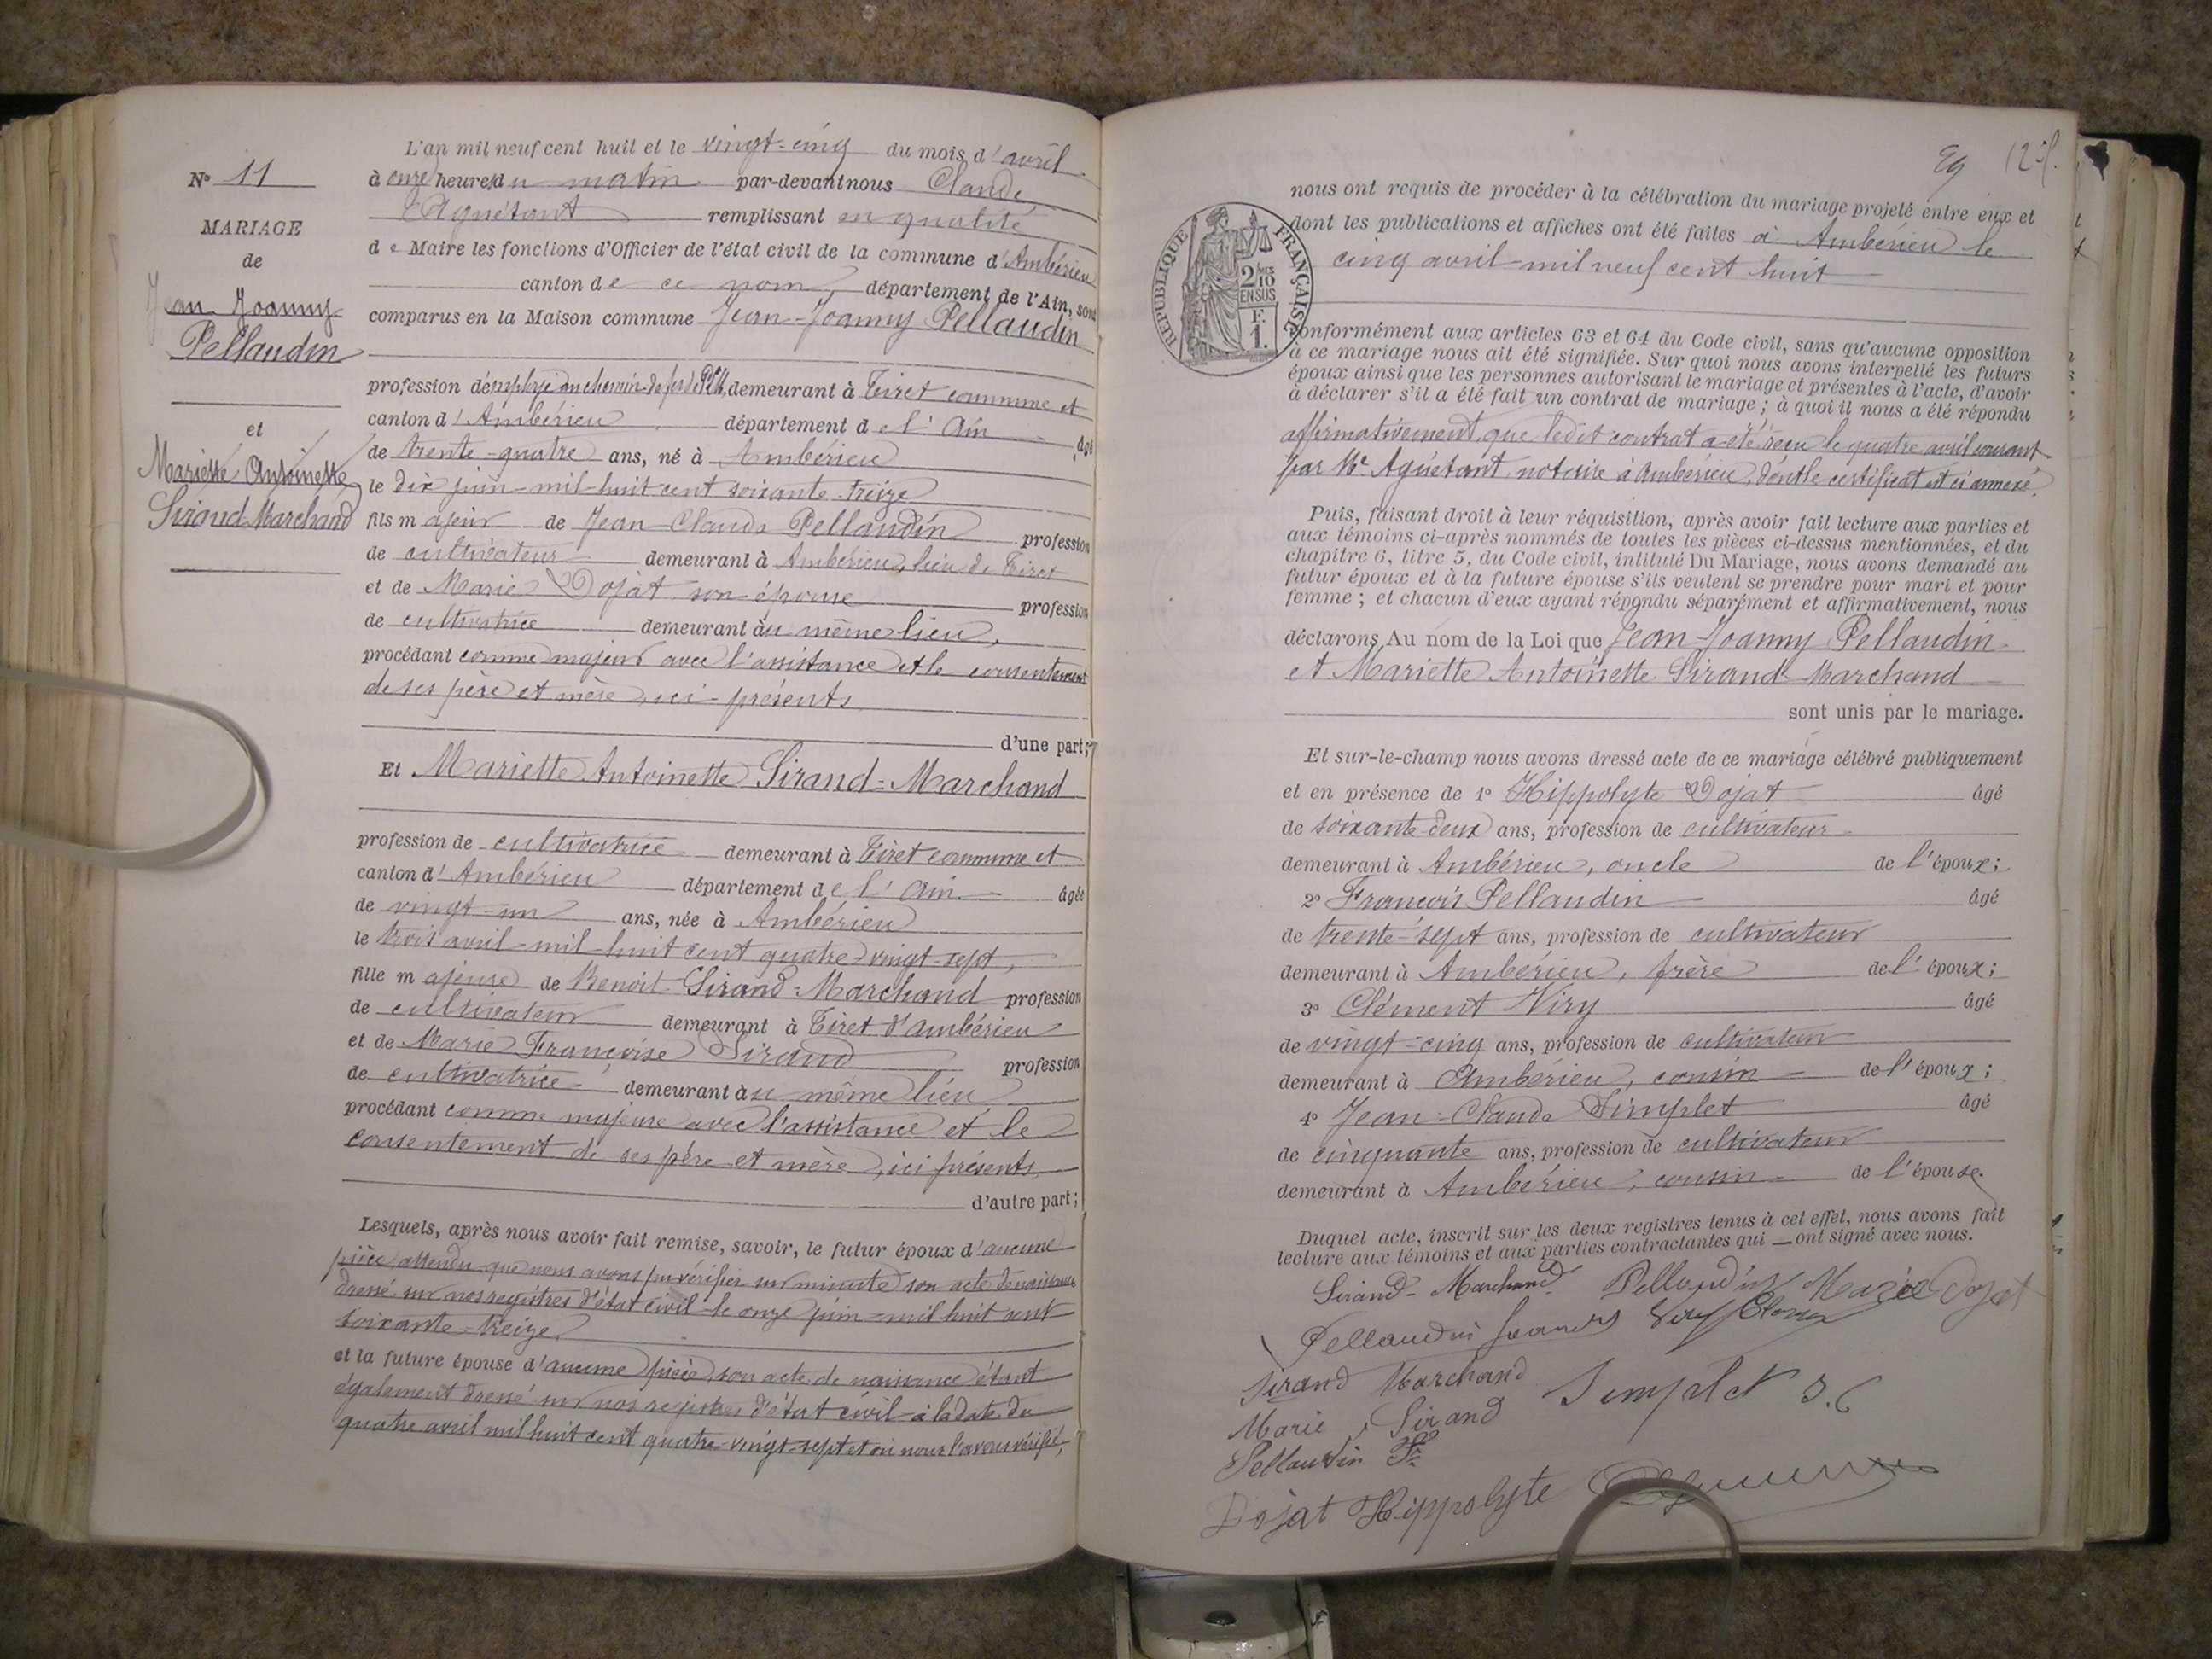 L'an mil neuf cent huit et le vingt-cinq du mois d'avril
à onze heures du matin par-devant nous Claude
Aguétant remplissant en qualité
de Maire les fonctions d'Officier de l'état civil de la commune d'Ambérieu
canton de ce nom, département de l'Ain, sont
comparus en la Maison commune Jean-Joanny Pellaudin
profession d'employé au chemin de fer demeurant à Tiret commune et
canton d'Ambérieu département de l'Ain âgé
de trente-quatre ans, né à Ambérieu
le dix juin-mil-huit cent soixante-treize
fils majeur de Jean Claude Pellaudin profession
de cultivateur demeurant à Ambérieu, lieu de Tiret
et de Marie Dojat son épouse profession
de cultivatrice demeurant au même lieu,
procédant comme majeur avec l'assistance et le consentement
de ses père et mère, ici-présents
d'une part;
Et Mariette Antoinette Sirand-Marchand
profession de cultivatrice demeurant à Tiret commune et
canton d'Ambérieu département de l'Ain âgée
de vingt-un ans, née à Ambérieu
le trois avril-mil-huit cent quatre-vingt-sept,
fille majeure de Benoit Sirand-Marchand profession
de cultivateur demeurant à Tiret d'Ambérieu
et de Marie Françoise Sirand profession
de cultivatrice demeurant au même lieu
procédant comme majeure avec l'assistance et le
consentement de ses père et mère, ici présents,
d'autre part;
Lesquels, après nous avoir fait remise, savoir, le futur époux d'aucune
pièce, attendu que nous avons pu vérifier sur minute son acte de naissance
dressé sur nos registres d'état civil le onze juin-mil huit cent
soixante-treize
et la future épouse d'aucune pièce, son acte de naissance étant
également dressé sur nos registres d'état civil à la date du
quatre avril mil huit cent quatre-vingt-sept et où nous l'avons vérifié,
N° 11
MARIAGE
de
Jean Joanny
Pellaudin
et
Mariette Antoinette
Sirand-Marchand
nous ont requis de procéder à la célébration du mariage projeté entre eux et
dont les publications et affiches ont été faites à Ambérieu le
cinq avril-mil neuf cent huit
RÉPUBLIQUE FRANÇAISE
2/10 EN SUS
F. 1.
conformément aux articles 63 et 64 du Code civil, sans qu'aucune opposition
à ce mariage nous ait été signifiée. Sur quoi nous avons interpellé les futurs
époux ainsi que les personnes autorisant le mariage et présentes à l'acte, d'avoir
à déclarer s'il a été fait un contrat de mariage; à quoi il nous a été répondu
affirmativement, que ledit contrat a été reçu le quatre avril courant
par Me Aguétant, notaire à Ambérieu, dont le certificat est ci annexé.
Puis, faisant droit à leur réquisition, après avoir fait lecture aux parties et
aux témoins ci-après nommés de toutes les pièces ci-dessus mentionnées, et du
chapitre 6, titre 5, du Code civil, intitulé Du Mariage, nous avons demandé au
futur époux et à la future épouse s'ils veulent se prendre pour mari et pour
femme; et chacun d'eux ayant répondu séparément et affirmativement, nous
déclarons Au nom de la Loi que Jean-Joanny Pellaudin
et Mariette Antoinette Sirand-Marchand
sont unis par le mariage.
Et sur-le-champ nous avons dressé acte de ce mariage célébré publiquement
et en présence de 1° Hippolyte Dojat âgé
de soixante-deux ans, profession de cultivateur
demeurant à Ambérieu, oncle de l'époux;
2° François Pellaudin âgé
de trente-sept ans, profession de cultivateur
demeurant à Ambérieu, frère de l'époux;
3° Clément Viry âgé
de vingt-cinq ans, profession de cultivateur
demeurant à Ambérieu, cousin de l'époux;
4° Jean-Claude Simplet âgé
de cinquante ans, profession de cultivateur
demeurant à Ambérieu, cousin de l'épouse.
Duquel acte, inscrit sur les deux registres tenus à cet effet, nous avons fait
lecture aux témoins et aux parties contractantes qui ont signé avec nous.
Sirand-Marchand Pellaudin Marie Dojat
Pellaudin Viry
Sirand Marchand
Simplet J. C
Marie Sirand
Pellaudin F.
Dojat Hippolyte